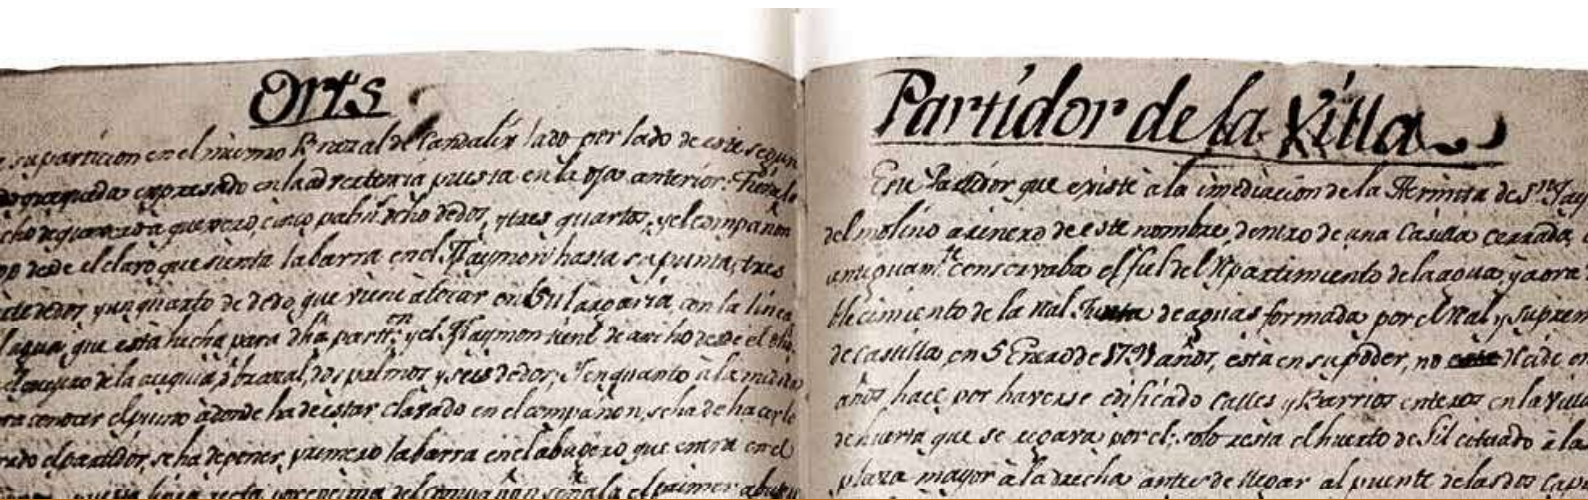 Orts
su particion en el mismo Brazal de Candalix lado por lado de este segun
expresado en la advertencia puesta en la oja anterior: Tiene
cinco palmos, ocho dedos, y tres quartos, y el compañon
desde el claro que sienta la barra en el Haymon hasta su punta, tres
dedos y un quarto de dedo, que viene a tocar en su largaria, con la linea
agua, que está hecha para dha partt.on y el Haymon tiene de ancho desde el
de la acequia, ó brazal, dos palmos y seis dedos; Y en quanto à la medida
para conocer el punto à donde ha de estar clavado en el compañon, se ha de hacer
el partidor, se ha de poner primero la barra en el abugero que entra en el
linea recta por encima del compañon señala el primer
Partidor de la Villa
Este Partidor que existe à la imediacion de la Hermita de S.n Jay
del molino arinero de este nombre, dentro de una Casilla cerrada,
antiguam.te conservaba el fiel del Repartimiento de la agua, y aora
blecimiento de la Rl Junta de aguas formada por el Real y Suprem
de Castilla en 5 Enero de años, está en su poder, no reside en
años hace por haverse edificado Calles y Barrios enteros en la Villa
de huerta que se regava por el; solo resta el huerto de Gil cituado à la
plaza mayor à la derecha antes de llegar al puente de las dos Cap